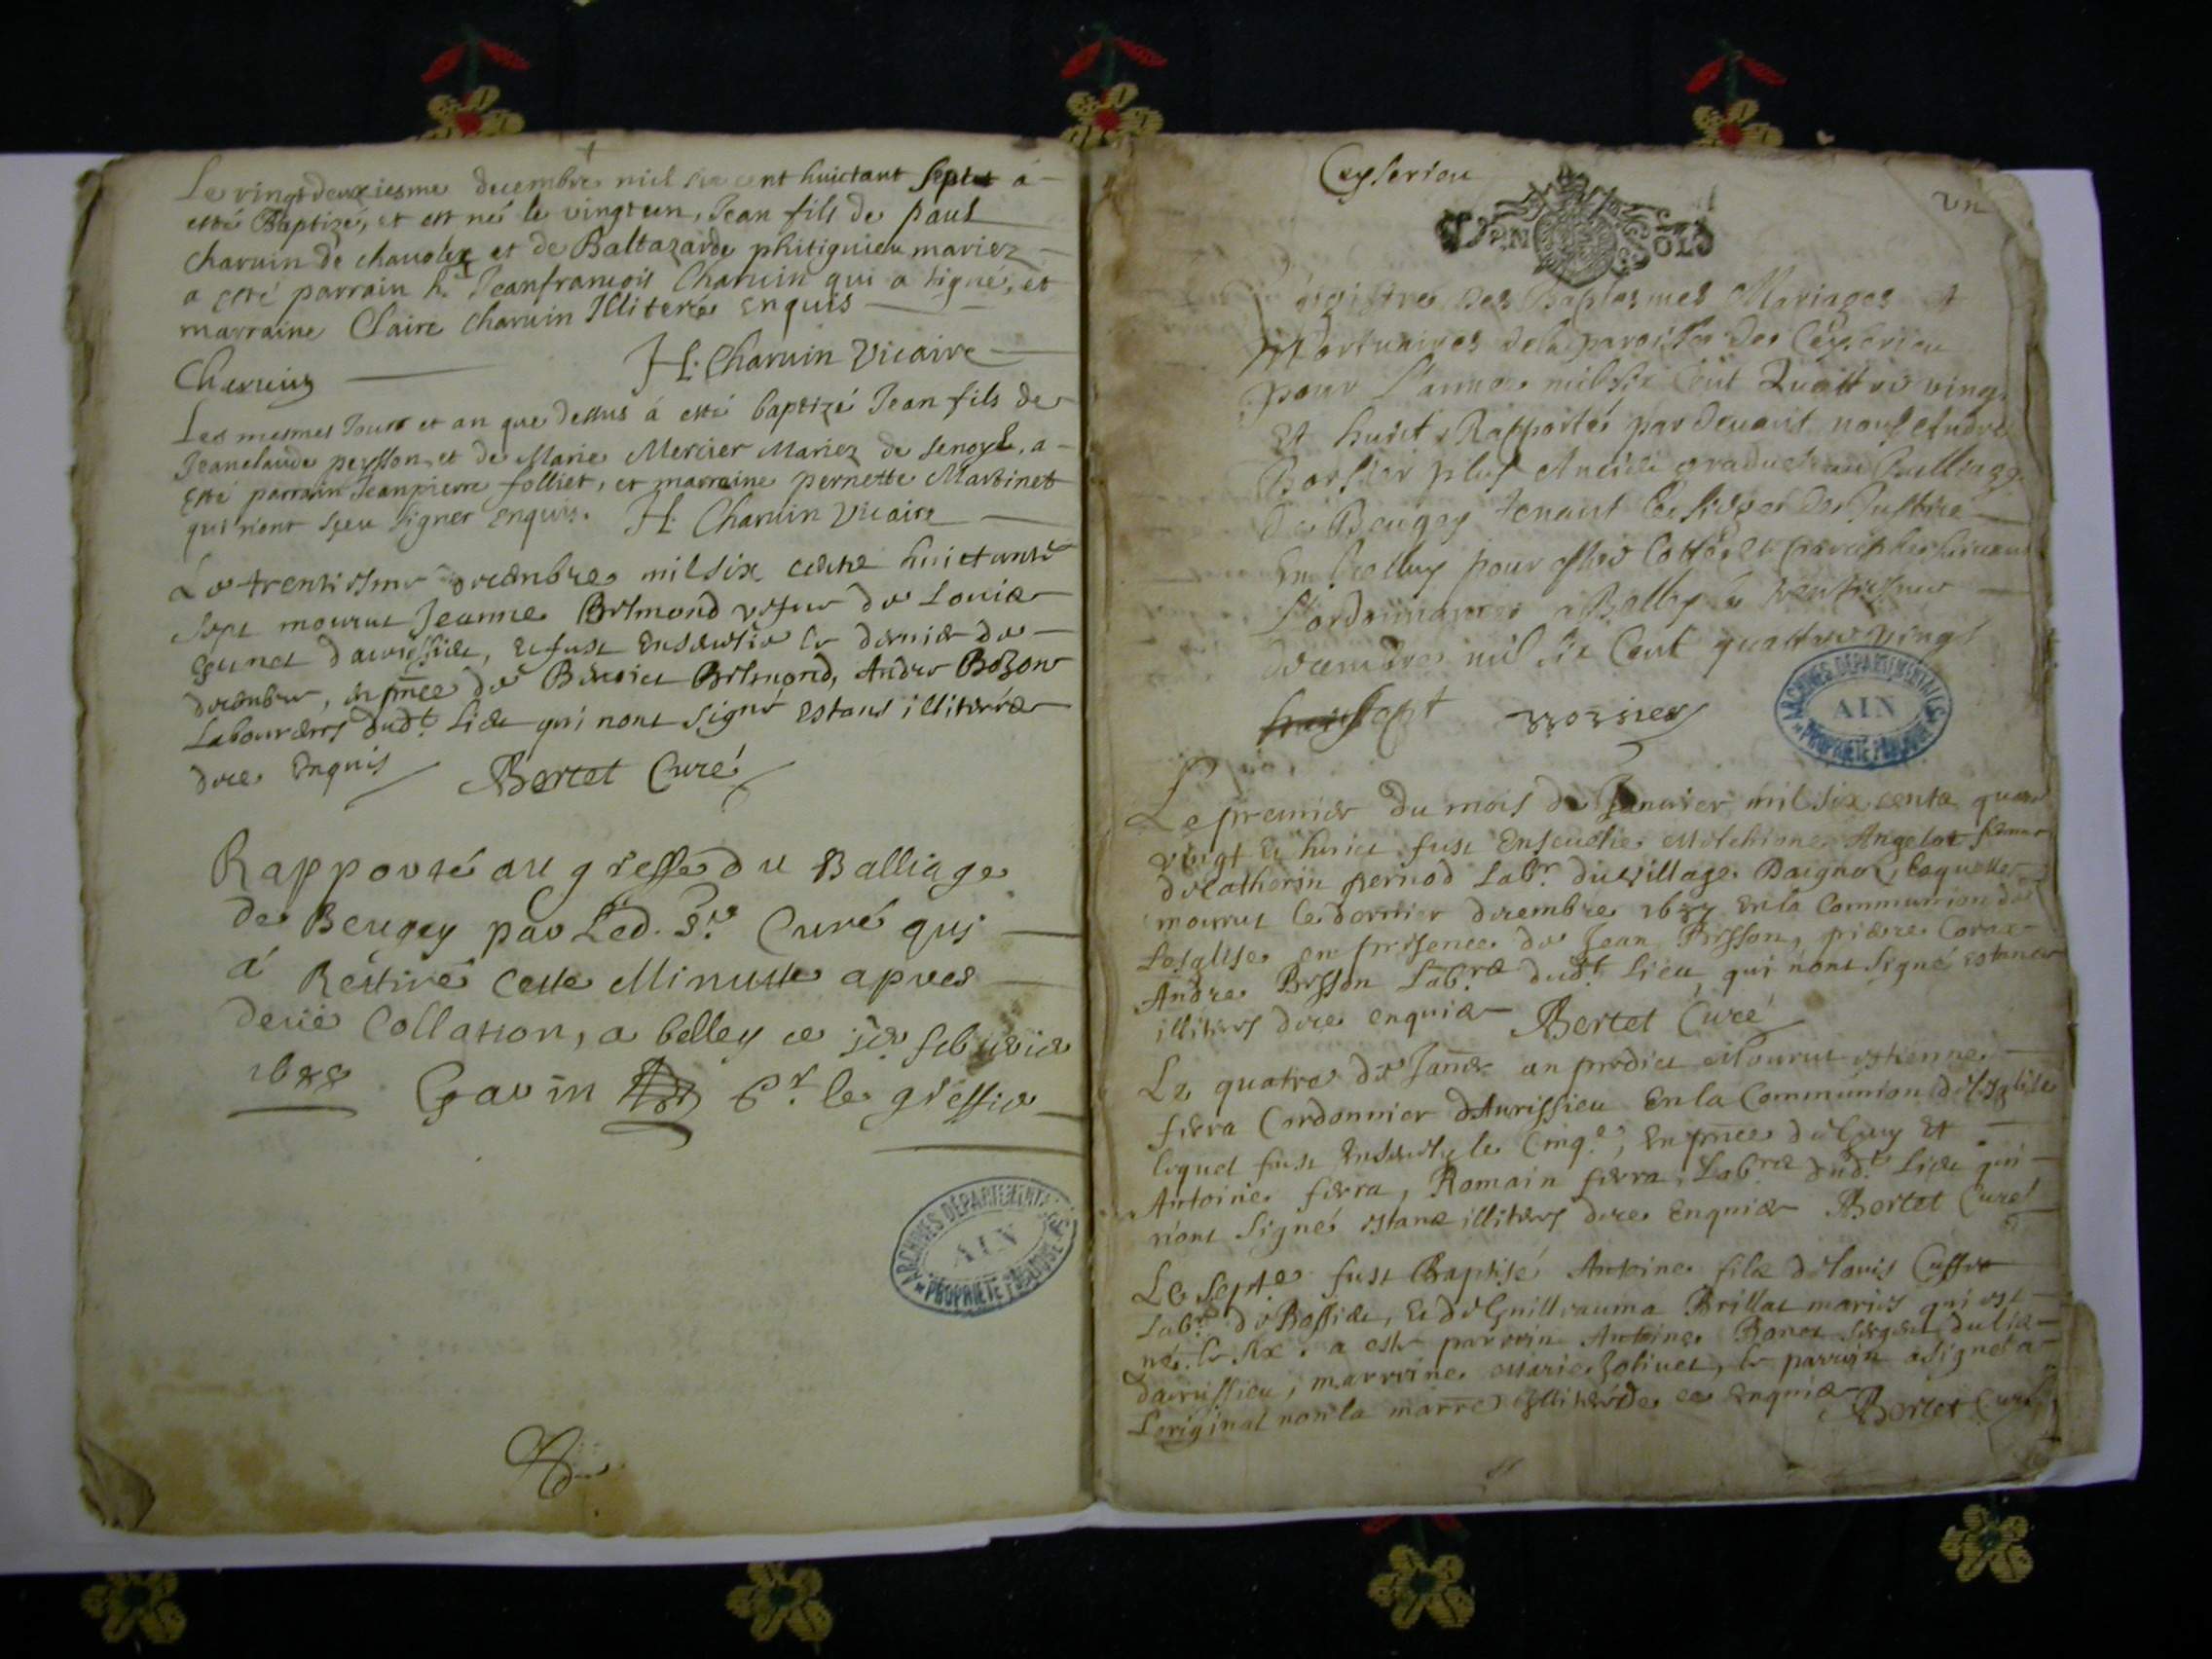 Le vingtdeuxiesme decembre mil six cent huictant sept a
esté Baptizé, et est né le vingt un, Jean fils de paul
charuin de chauolex et de Baltazarde phitignieu mariez
a esté parrain h. Jeanfrancois Charuin qui a signé, et
marraine Claire charuin Illiterée Enquis
Charuin H. Charuin Vicaire
Les mesmes Jour et an que dessus á esté baptizé Jean fils de
Jeanclaude peysson et de Marie Mercier Mariez de senoyl, a
Esté parrain Jeanpierre folliet, et marraine pernette Martinet
qui n'ont sçeu signer Enquis. H. Charuin Vicaire
Le trentiesme decenbre mil six cents huictante
sept mourut Jeanne Brlmond vefue de Louis
dauressieu, et fust Enseuelie le dernier de
decenbre, en pnce de Benoict Brlmond, Andre Bozon
Laboureurs dudt. lieu qui nont signé Estans illiterés
de ce Enquis Bertet Curé
Rapporté au greffe du Balliage
de Beugey par Led. Sr. Curé qui
á Restiré Ceste Minutte apres
deüe Collation, a belley ce feburier
1688 Gavin pr. le greffier
ARCHIVES DÉPARTEMENTALES
AIN
PROPRIÉTÉ PUBLIQUE
Ceyserieu
un
GEN DE DIJ
Registre Des Baptesmes Mariages et
Mortuaires de la paroisse De Ceyserieu
pour l'annee mil six Cent Quattre ving
et huict Rapporté par deuant nous Andre
plus Ancien gradué au Balliage
De Beugey tenant le siege de Justice
En Belley pour estre Cotté et
L'ordonnance a Belley le trentiesme
decembre mil six Cent quattre vingt
sept
ARCHIVES DÉPARTEMENTALES
AIN
PROPRIÉTÉ PUBLIQUE
Le premier du mois de Januier mil six cents quatre
vingt et huict fust Enseuelie Angelot feme
de Catherin pernod Labr. du village Daignoz, laquelle
mourut le dernier decembre 1687 En la Communion de
Lesglise en presence de Jean Bisson, pierre Corax
Andre Bisson Labrs dudt. lieu qui nont signé estans
illiters de ce enquis Bertet Curé
Le quatre de Janer an predict Mourut estienne
fierra Cordonnier dAurissieu En la Communion de Lesglise
lequel fust Enseuely le Cinqe, En pnce de Guy Et
Antoine fierra, Romain fierra, Labrs dudt. lieu qui
nont Signé estans illiters de ce Enquis Bertet Curé
Le Septe fust Baptisé Antoine fils de Louis Cusset
Labr. de Bossieu, et de Guillauma Brillat mariés qui est
né le six. a esté parrain Antoine Bonet sergent du lieu
daurissieu, marraine Marie Joliuet, le parrain a signé a
Loriginal non la marre illiterée de ce Enquis Bertet Curé